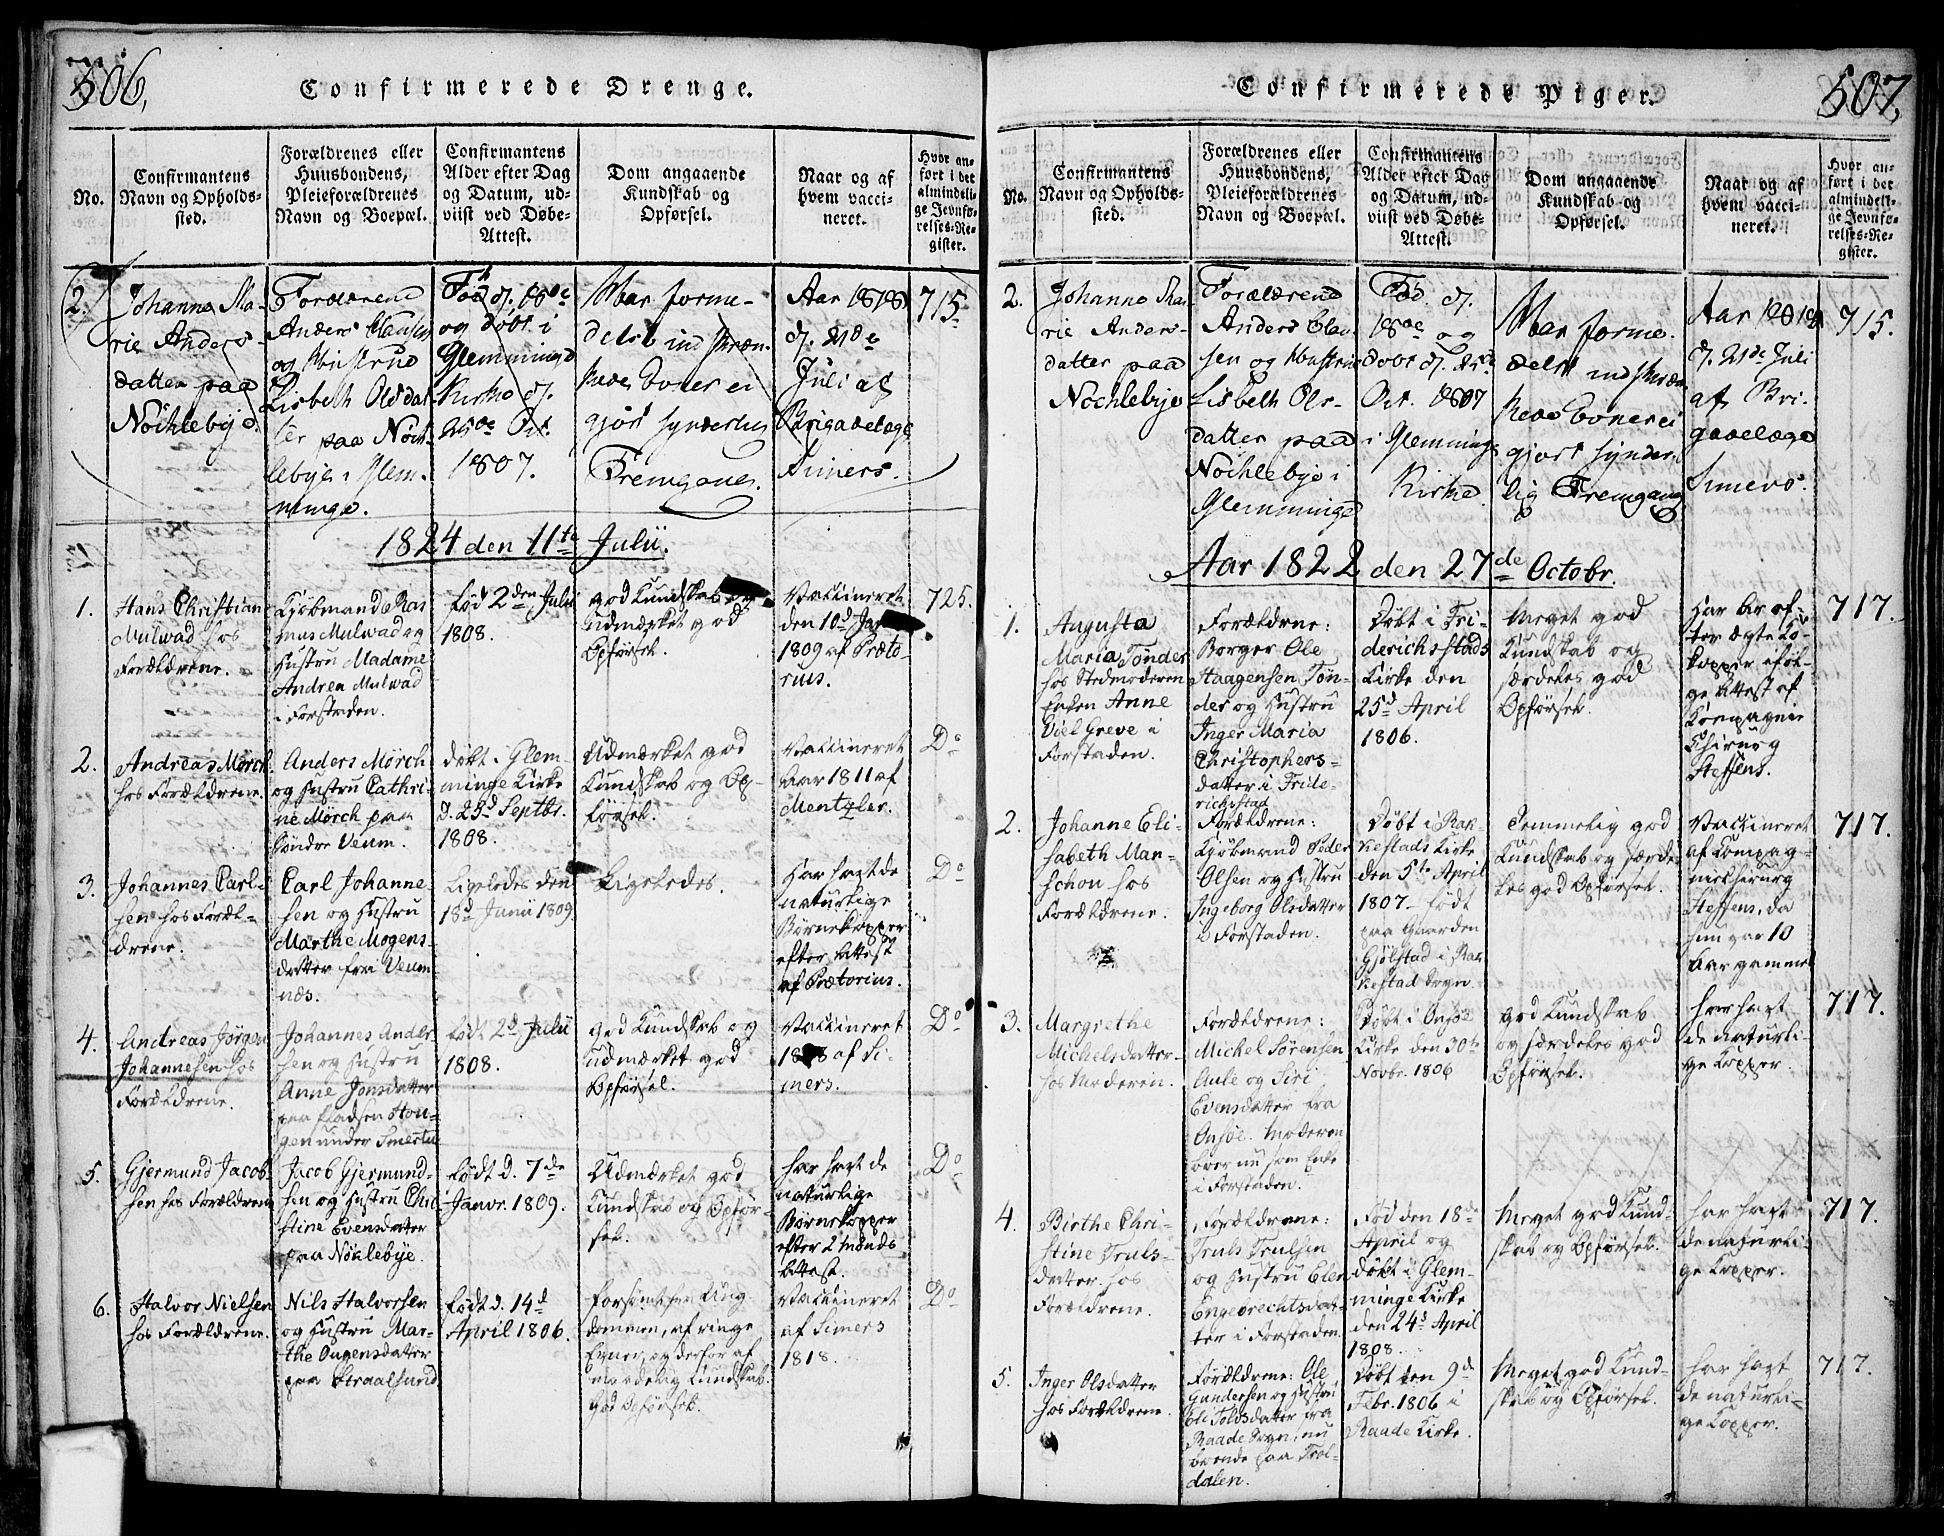 506,
Confirmerede Drenge.
No.
Confirmantens
Navn og Opholds-
sted.
Forældrenes eller
Huusbondens,
Pleieforældrenes
Navn og Boepæl.
Confirmantens
Alder efter Dag
og Datum, ud-
viist ved Døbe-
Attest.
Dom angaaende
Kundskab og
Opførsel.
Naar og af
hvem vacci-
neret.
Hvor an-
ført i det
almindeli-
ge Jevnfø-
relses-Re-
gister.
2.
Johanna Ma-
rie Anders-
datter paa
Nöchlebye.
Forældrend
Anders Clausen
og Hustrue
Lisbeth Olsdat-
ter paa Nöch-
lebye i Glem-
minge.
Fød d. 18de
og døbt i
Glemminge
Kirke d.
25de Oct.
1807.
Har forme-
delst indskræn-
kede Evner ei
gjort synderlig
Fremgang.
Aar 1818
d. 21de
Juli af
Brigadelæge
Simers.
715.
1824 den 11te Julii.
1.
Hans Christian
Mulwad hos
Forældrene.
Kjöbmand Ras
mus Mulwad og
Hustru Madame
Andrea Mulwad
i Forstaden.
född 2den Julii
1808.
god Kundskab og
udmærket god
Opførsel.
Vaccineret
den 10d Jan
1809 af Præto-
rius.
725.
2.
Andreas Mørch
hos Forældrene.
Anders Mörch
og Hustru Cathri-
ne Mörch paa
Söndre Veum.
døbt i Glem-
minge Kirke
d. 25d Septbr.
1808.
Udmærket god
Kundskab og Op-
førsel.
Vaccineret
Aar 1811 af
Mentzler.
Do
3.
Johannes Carl-
sen hos Foræl-
drene.
Carl Johanne-
sen og Hustru
Marthe Mogens-
datter fra Veum-
næs.
Ligeledes den
18d Junii 1809
Ligeledes.
Har havt de
naturlige
Børnekopper
efter Attest
af Prætorius.
Do
4.
Andreas Jörgen
Johannesen hos
Forældrene.
Johannes Ander
sen og Hustru
Anne Jonsdatter
paa Pladsen Hou-
gen under Smertu
født 2d Julii
1808.
god Kundskab og
udmærket god
Opførsel.
Vaccineret
af Si-
mers.
Do
5.
Gjermund Jacob-
sen hos Forældrene
Jacob Gjermund-
sen og Hustru Chri-
stine Evensdatter
paa Nöklebye.
født d. 7de
Janvr. 1809.
Udmærket god
Kundskab og Opfør-
sel.
har havt de
naturlige
Börnekopper
efter 2 Mænds
Attest.
Do
6.
Halvor Nielsen
hos Forældrene.
Nils Halvorsen
og Hustru Mar-
the Ougensdatter
paa Straalsund
født d. 14d
April 1806.
forsömt sin Ung-
dommen, af ringe
Evner, og derfor af
maadelig Kundskab.
God Opførsel.
Vaccineret
af Simers
1818.
Do
507,
Confirmerede Piger.
No.
Confirmantens
Navn og Opholds-
sted.
Forældrenes eller
Huusbondens,
Pleieforældrenes
Navn og Boepæl.
Confirmantens
Alder efter Dag
og Datum, ud-
viist ved Døbe-
Attest.
Dom angaaende
Kundskab og
Opførsel.
Naar og af
hvem vacci-
neret.
Hvor an-
ført i det
almindeli-
ge Jevnfø-
relses-Re-
gister.
2.
Johanne Ma-
rie Anders-
datter paa
Nöchlebye
Forældrend
Anders Clau-
sen og Hustrue
Lisbeth Ols-
datter paa
Nöchlebye i
Glemminge
Fød. d.
18de og
døbt d. 25de
Oct. 1807
i Glemminge
Kirke
Har forme-
delst indskræn
kede Evner ei
gjort synder-
lig Fremgang
Aar 1818
d. 21de Juli
af Bri-
gadelæge
Simers.
715.
Aar 1822 den 27de Octobr.
1.
Augusta
Maria Tönder
hos Stedmoderen
Enken Anne
Viel Greve i
Forstaden.
Forældrene:
Borger Ole
Haagensen Tön-
der og Hustru
Inger Maria
Christophers-
datter i Fride-
richsstad
Døbt i Fri-
derichsstads
Kirke den
25d April
1806.
Meget god
Kundskab og
særdeles god
Opførsel.
Har ar ef-
ter ægte Ko-
kopper iføl-
ge Attest af
Compagnie
Chirurg
Steffens.
717.
2.
Johanne Eli-
sabeth Man-
schon hos
Forældrene.
Forældrene:
Kjöbmand Peder
Olsen og Hustru
Ingeborg Olsdatter
i Forstaden.
Døbt i Rak-
kestads Kirke
den 5te April
1807 - født
paa Gaarden
Gjölstad i Rak
kestad Sogn.
Temmelig god
Kundskab og særde
les god Opførsel.
Vaccineret
af Compag-
niechirurg
Steffens, da
hun var 10
Aar gammel
717.
3.
Margrethe
Michelsdatter
hos Moderen.
Forældrene:
Michel Sörensen
Aule og Siri
Evensdatter fra
Onsöe. Moderen
boer nu som Enke
i Forstaden.
Døbt i Onsöe
Kirke den 30te
Novbr. 1806
god Kundskab
og særdeles god
Opførsel.
har havt
de naturli-
ge Kopper.
717.
4.
Birthe Chri-
stine Truls-
datter hos
Forældrene.
Forældrene:
Truls Trulsen
og Hustru Elen
Engebrechtsdat-
ter i Forstaden.
Fød den 18de
April og
døbt i Glem-
minge Kirke
den 24d April
1808.
Meget god Kund-
skab og Opførsel.
har havt
de naturli-
ge Kopper.
717.
5.
Inger Olsdatter
hos Forældrene.
Forældrene: Ole
Gundersen og Hustru
Eli Toldsdatter fra
Raade Sogn, nu
boende paa Trol-
dalen.
Døbt den 9d
Febr. 1806 i
Raade Kirke.
Meget god Kund-
skab og Opførsel.
har havt
de naturli-
ge Kopper.
717.